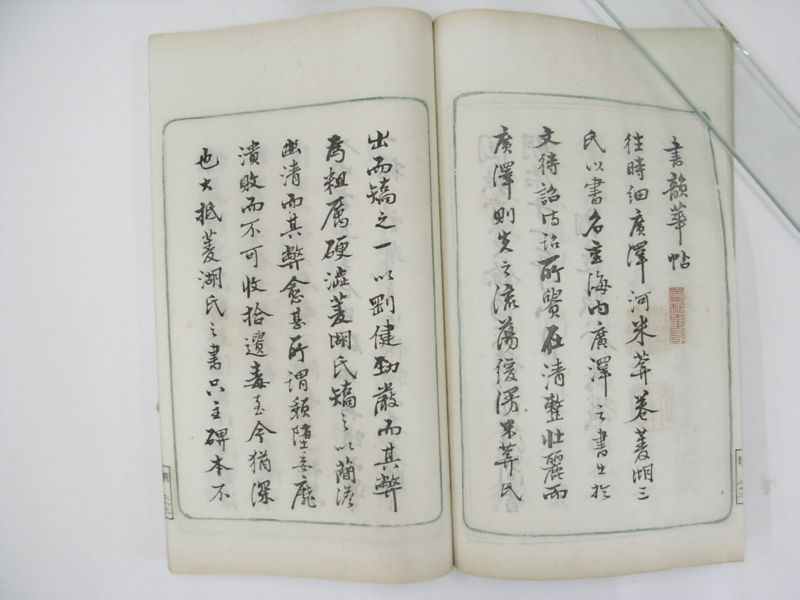 書韻華帖
往時細廣澤河米葊卷菱湖三
氏以書名重海内廣澤之書出於
文待詔待詔所貴在清整壯麗而
廣澤則失之流蕩緩弱米葊氏
出而矯之一以剛健勁嚴而其弊
為粗厲硬澁菱湖氏矯之以蘭
幽清而其弊愈甚所謂頽墮委靡
潰敗而不可收拾遺毒至今猶深
也大抵菱湖氏之書只主碑本不